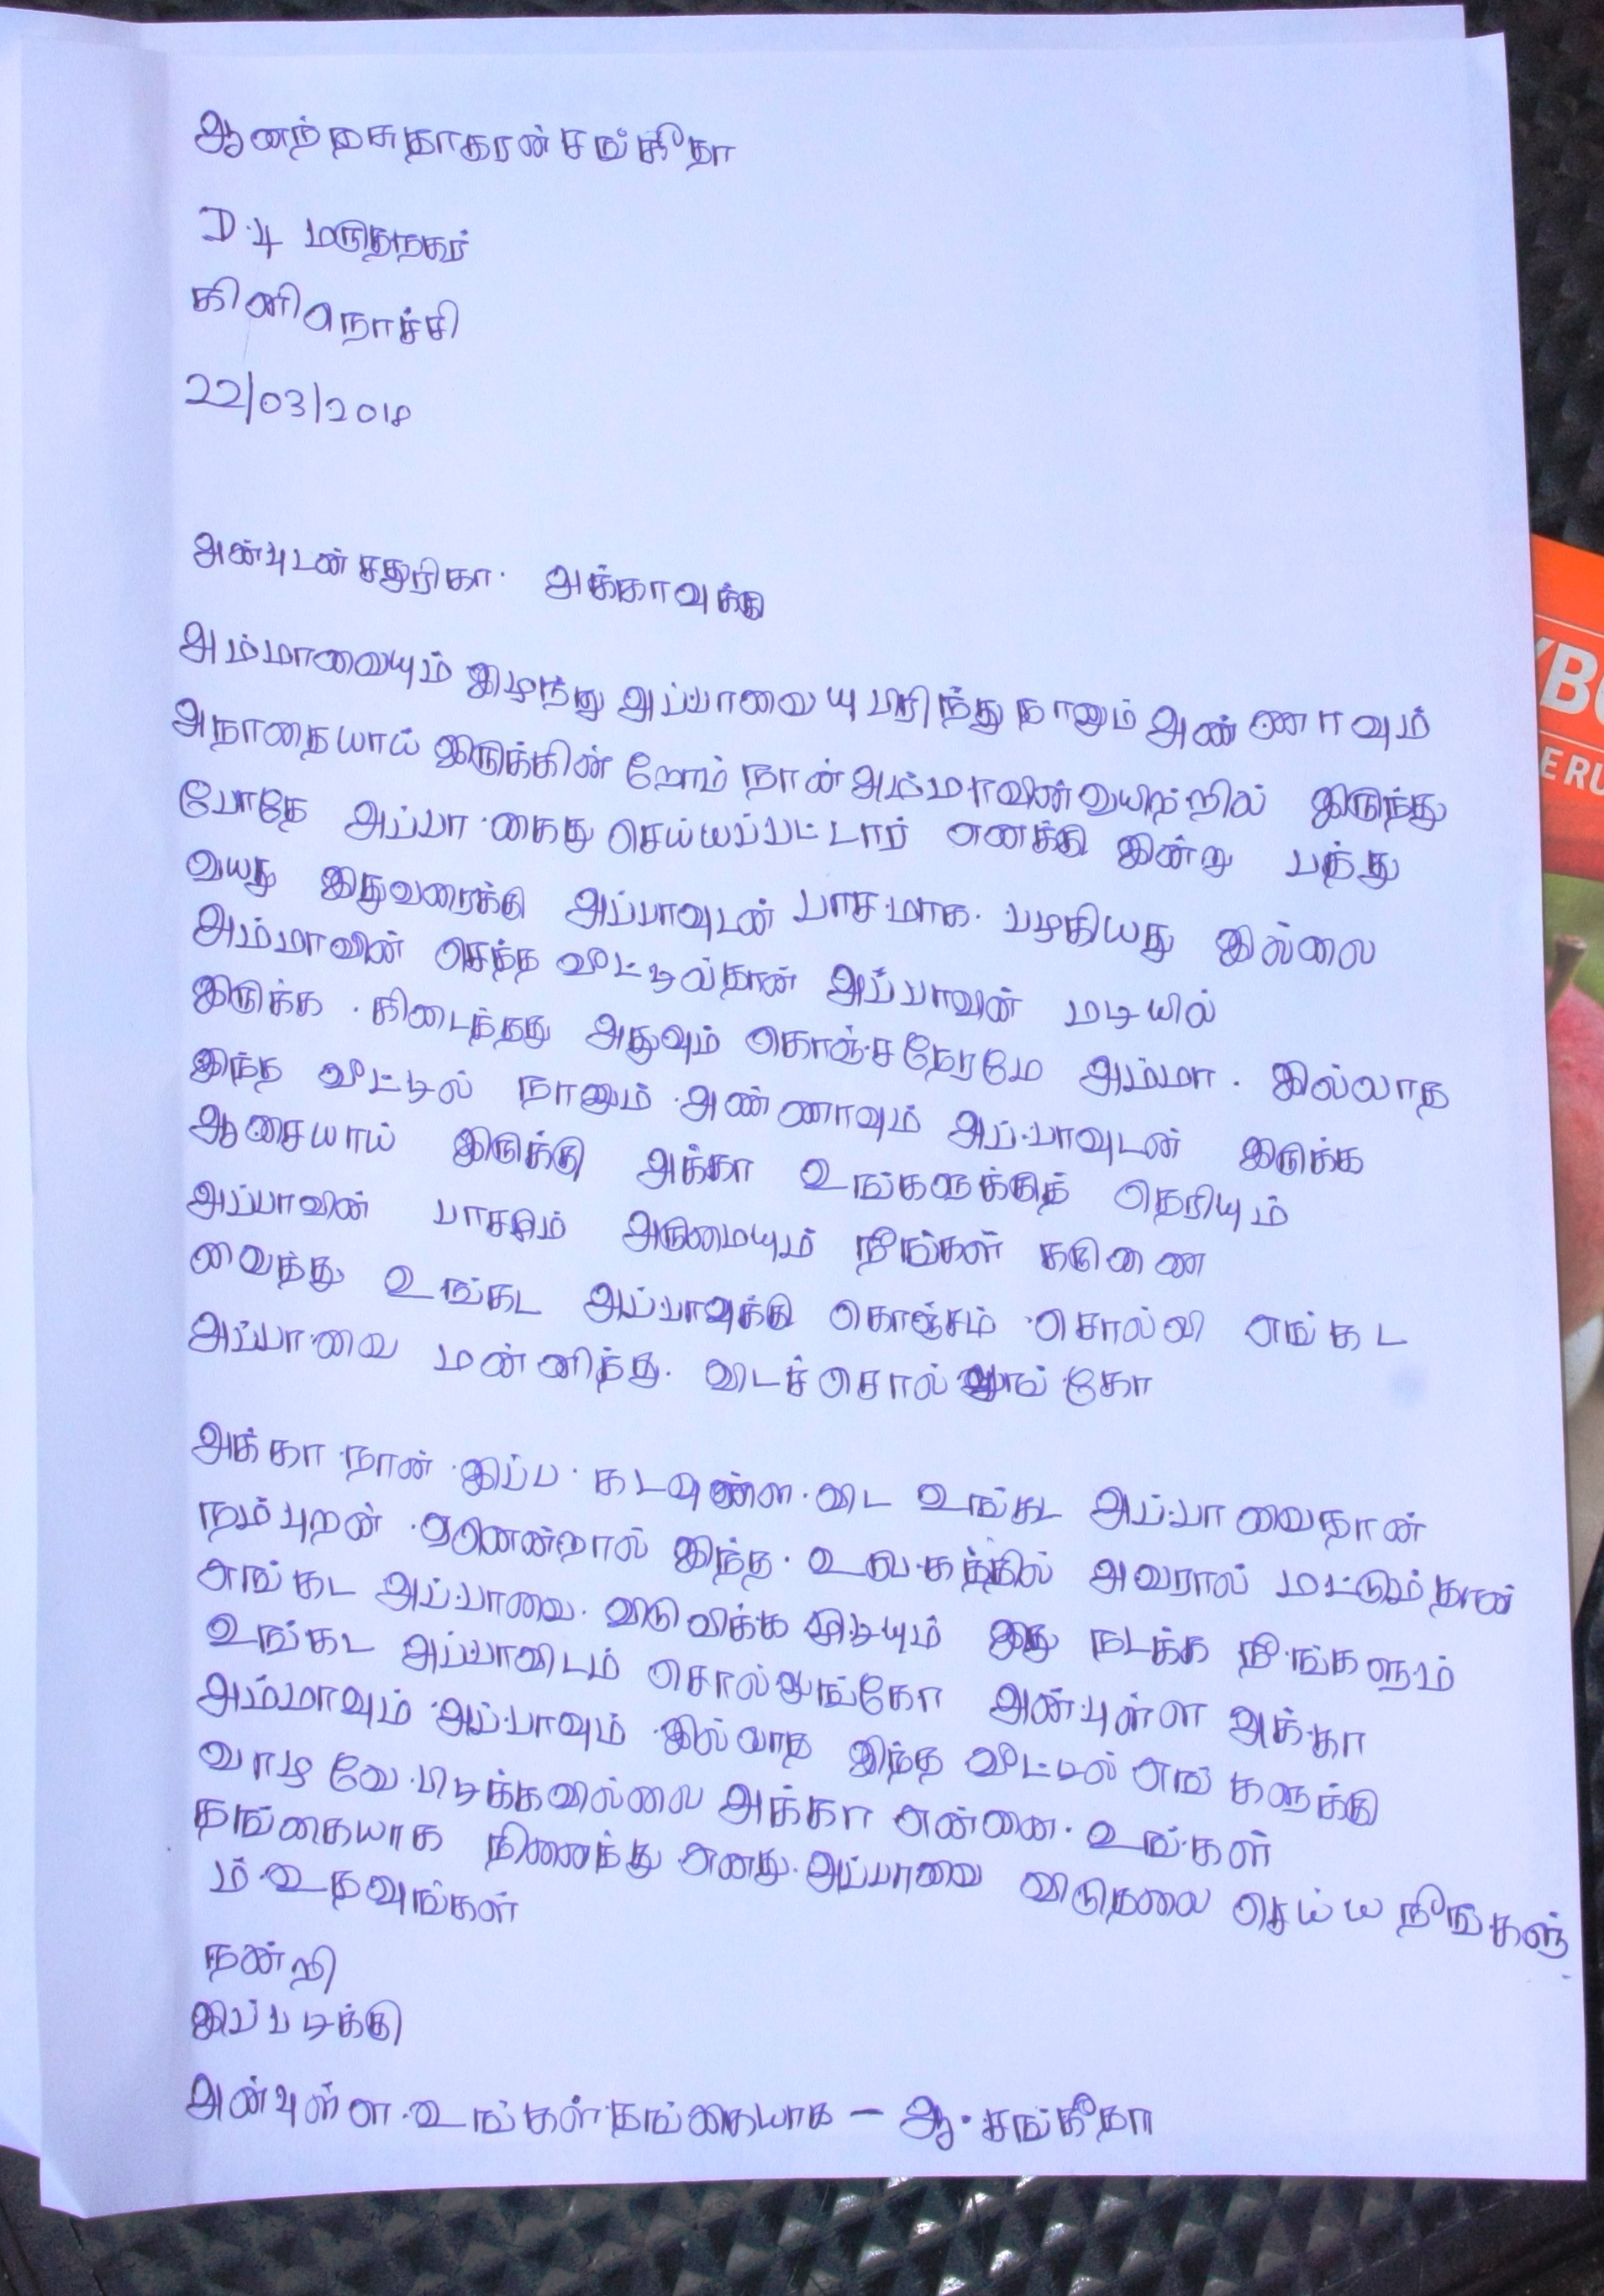 ஆனந்தசுதாகரன் சங்கீதா
D.4 மருதநகர்
கிளிநொச்சி
22/03/2018
அன்புடன் சதுரிகா. அக்காவுக்கு
அம்மாவையும் இழந்து அப்பாவையு பிரிந்து நானும் அண்ணாவும்
அநாதையாய் இருக்கின்றோம் நான் அம்மாவின் வயிற்றில் இருந்து
போதே அப்பா கைது செய்யப்பட்டார் எனக்கு இன்று பத்து
வயது இதுவரைக்கு அப்பாவுடன் பாசமாக பழகியது இல்லை
அம்மாவின் செத்த வீட்டில்தான் அப்பாவின் மடியில்
இருக்க கிடைத்தது அதுவும் கொஞ்சநேரமே அம்மா இல்லாத
இந்த வீட்டில் நானும் அண்ணாவும் அப்பாவுடன் இருக்க
ஆசையாய் இருக்கு அக்கா உங்களுக்குத் தெரியும்
அப்பாவின் பாசமும் அருமையும் நீங்கள் கருணை
வைத்து உங்கட அப்பாவுக்கு கொஞ்சம் சொல்லி எங்கட
அப்பாவை மன்னித்து விடச்சொல்லுங்கோ
அக்கா நான் இப்ப கடவுள்ள விட உங்கட அப்பாவைதான்
நம்புறன் ஏனென்றால் இந்த உலகத்தில் அவரால் மட்டும்தான்
எங்கட அப்பாவை விடுவிக்க முடியும் இது நடக்க நீங்களும்
உங்கட அப்பாவிடம் சொல்லுங்கோ அன்புள்ள அக்கா
அம்மாவும் அப்பாவும் இல்லாத இந்த வீட்டில் எங்களுக்கு
வாழவே பிடிக்கவில்லை அக்கா என்னை உங்கள்
தங்கையாக நினைத்து எனது அப்பாவை விடுதலை செய்ய நீங்களு
ம் உதவுங்கள்
நன்றி
இப்படிக்கு
அன்புள்ள உங்கள் தங்கையாக - ஆ. சங்கீதா